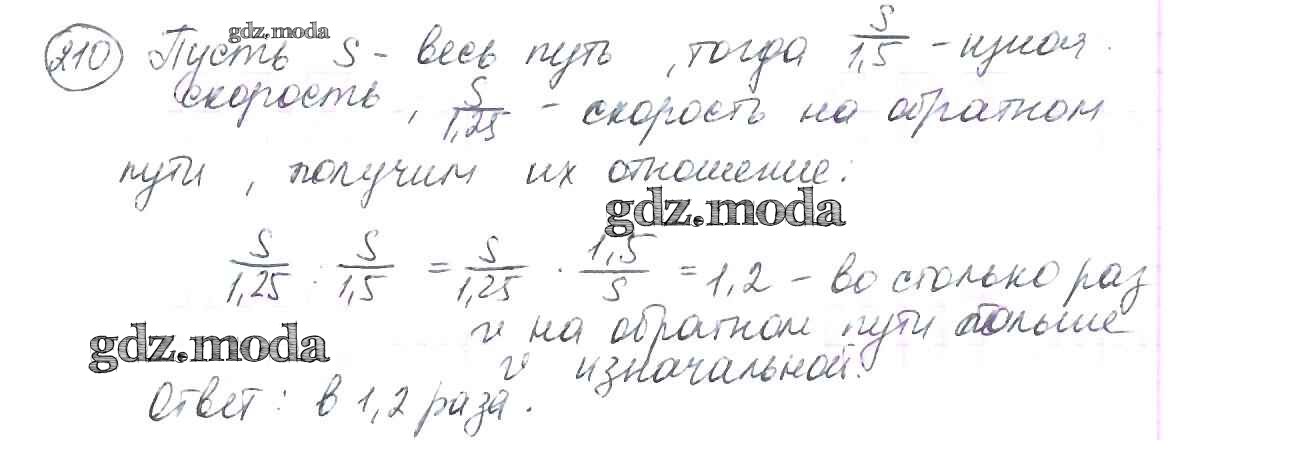 gdz.moda
210 Пусть S - весь путь, тогда S/1,5 - изнач.
скорость, S/1,25 - скорость на обратном
пути, получим их отношение:
gdz.moda
S/1,25 : S/1,5 = S/1,25 · 1,5/S = 1,2 - во столько раз
v на обратном пути больше
gdz.moda
v изначальной.
Ответ: в 1,2 раза.